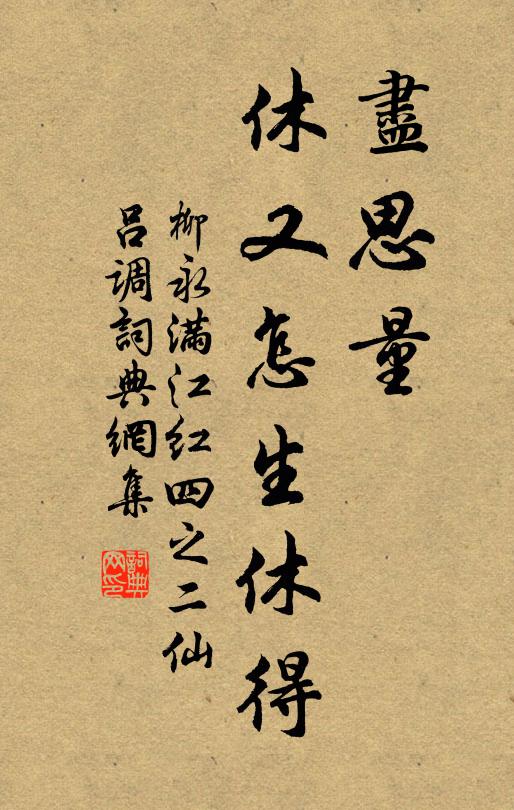 盡思量
休又怎生休得
柳永满江红四之二仙
吕调詞典網集
詞典网印